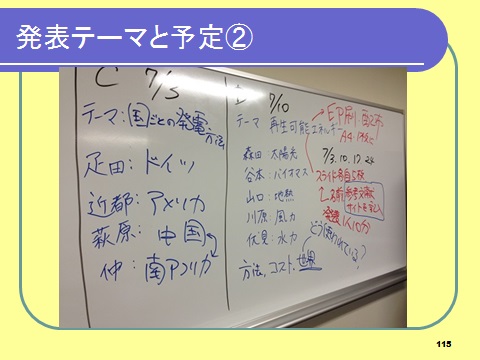 発表テーマと予定②
C 7/3
テーマ:国ごとの発電方法
疋田:ドイツ
近都:アメリカ
萩原:中国
仲:南アフリカ
7/10
テーマ 再生可能エネルギー
森田:太陽光
谷本:バイオマス
山口:地熱
川原:風力
伏見:水力
方法、コスト、世界
どう使われている?
印刷・配布
A4
7/3. 10. 17. 24
スライド各自5枚
名前
参考文献
サイトを記入
発表1人10分
115